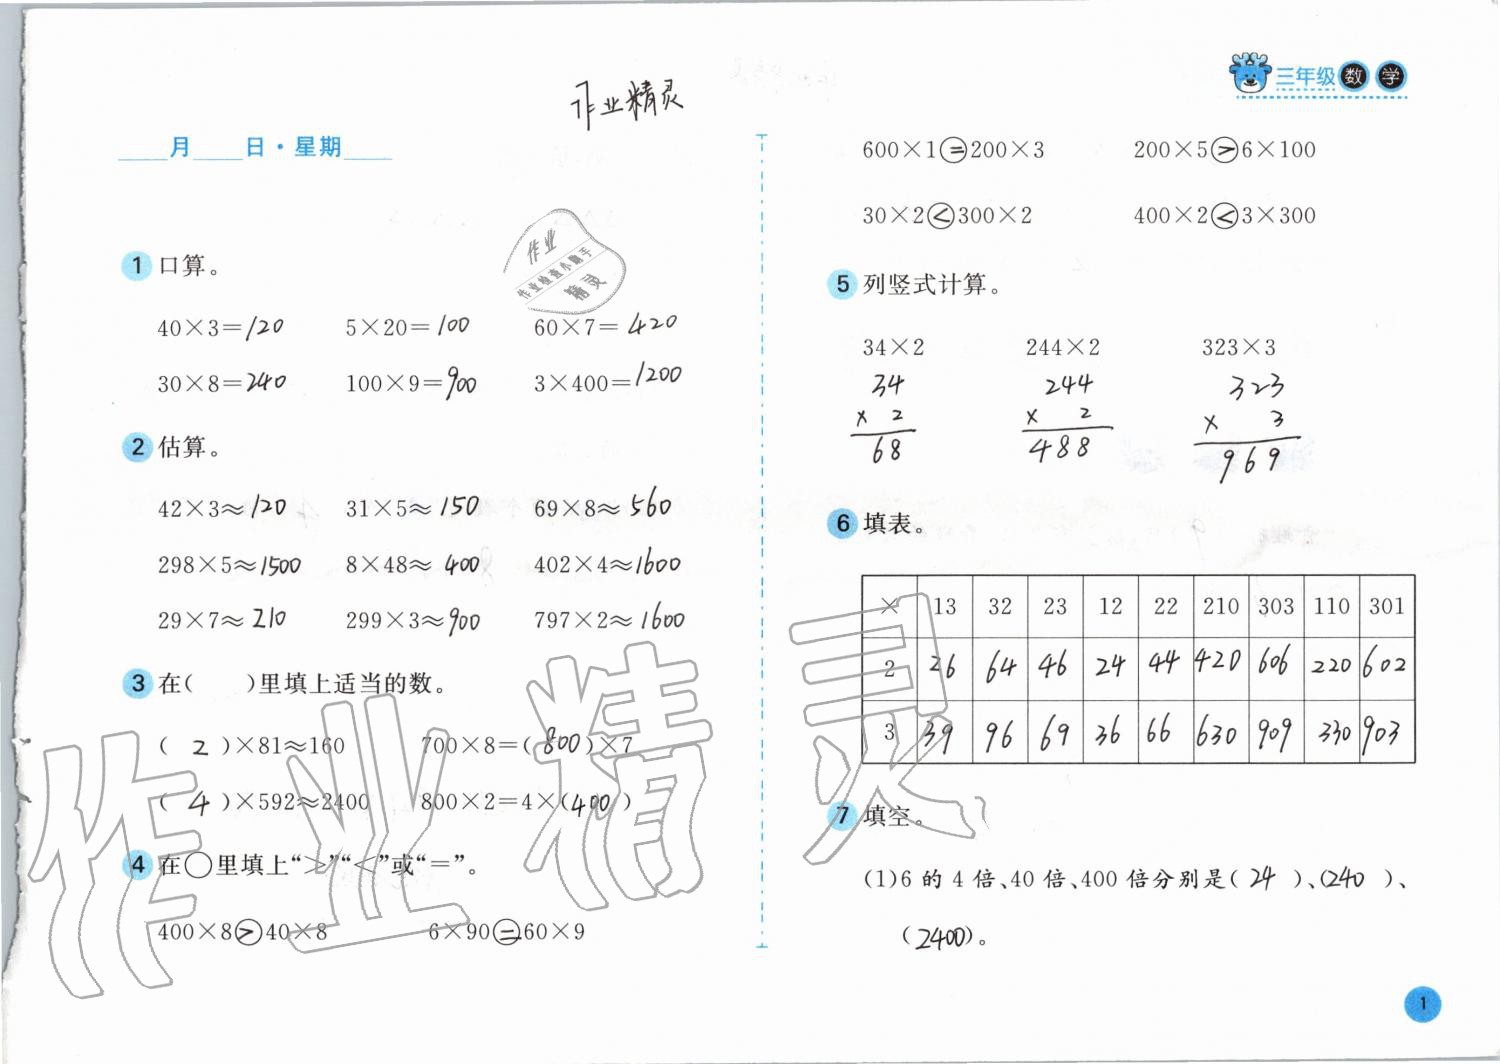 作业精灵
三年级 数 学
月 日·星期
作业
作业检查小助手
精灵
1 口算。
40×3=120 5×20=100 60×7=420
30×8=240 100×9=900 3×400=1200
2 估算。
42×3≈120 31×5≈150 69×8≈560
298×5≈1500 8×48≈400 402×4≈1600
29×7≈210 299×3≈900 797×2≈1600
3 在( )里填上适当的数。
(2)×81≈160 700×8=(800)×7
(4)×592≈2400 800×2=4×(400)
4 在○里填上“>”“<”或“=”。
400×8>40×8 6×90=60×9
600×1=200×3 200×5>6×100
30×2<300×2 400×2<3×300
5 列竖式计算。
34×2 244×2 323×3
34 244 323
× 2 × 2 × 3
68 488 969
6 填表。
× 13 32 23 12 22 210 303 110 301
2 26 64 46 24 44 420 606 220 602
3 39 96 69 36 66 630 909 330 903
7 填空。
(1)6的4倍、40倍、400倍分别是(24)、(240)、
(2400)。
作业精灵
1